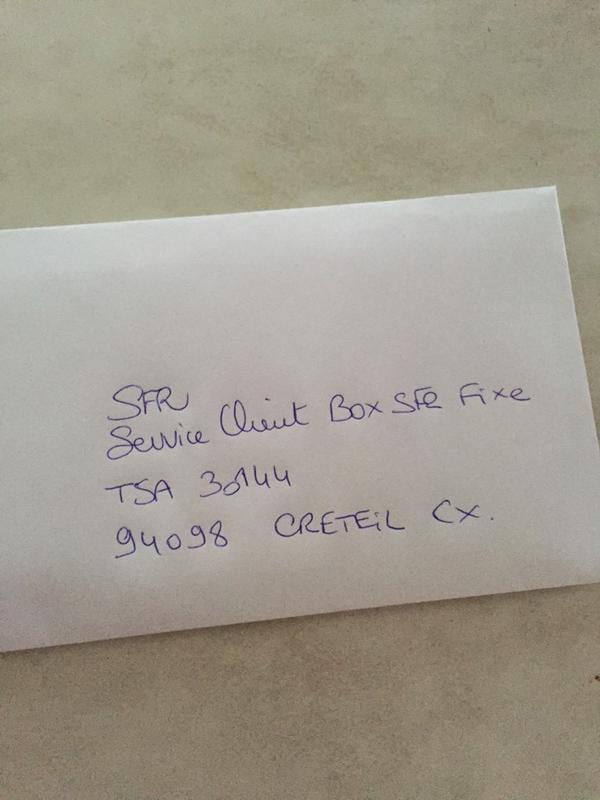 SFR
Service Client Box SFR Fixe
TSA 30144
94098 CRETEiL CX.